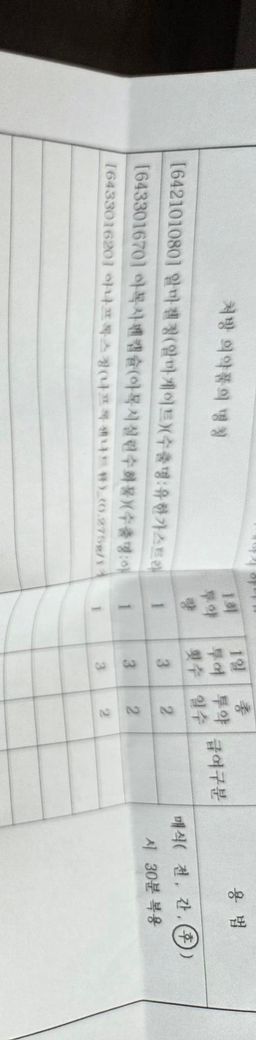 처방 의약품의 명칭
1회 투약량
1일 투여 횟수
총 투약 일수
급여구분
용 법
[642101080] 알마겔정(알마게이트)(수출명:유한가스트라 1 3 2
[643301670] 아목사펜캡슐(아목시실린수화물)(수출명:아 1 3 2
[643301620] 아나프록스정(나프록센나트륨)_(0.275g/1정 1 3 2
매식( 전, 간, 후 )
시 30분 복용